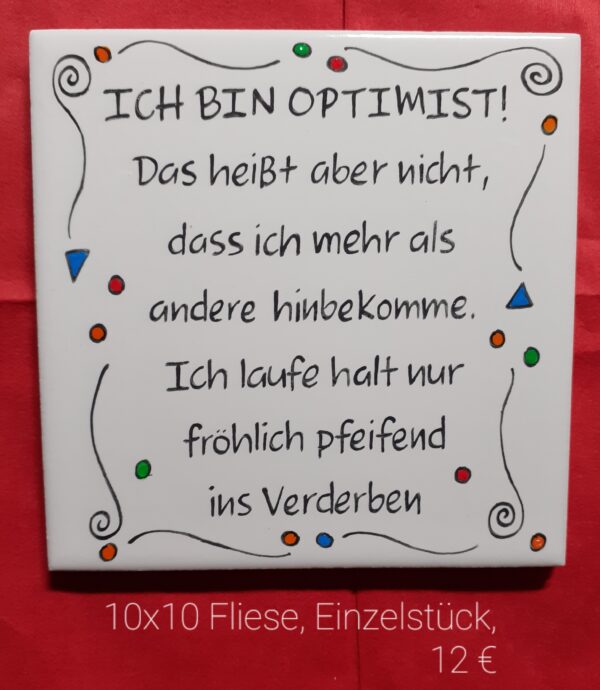 ICH BIN OPTIMIST!
Das heißt aber nicht,
dass ich mehr als
andere hinbekomme.
Ich laufe halt nur
fröhlich pfeifend
ins Verderben
10x10 Fliese, Einzelstück,
12 €